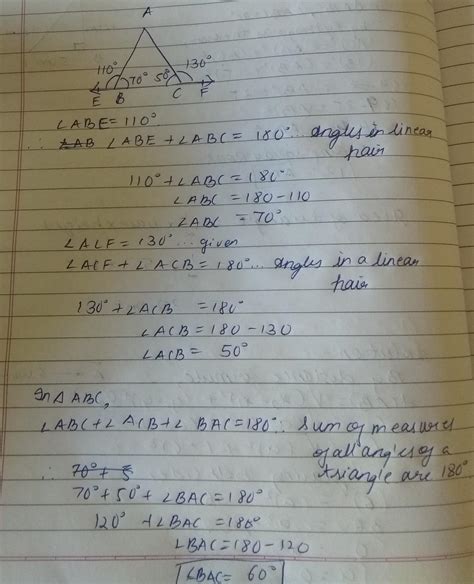 A
110° 70° 50° 130°
E B C F
∠ABE = 110°
∴ ∠ABE + ∠ABC = 180° angles in linear
pair
110° + ∠ABC = 180°
∠ABC = 180 - 110
∠ABC = 70°
∠ACF = 130° ... given
∠ACF + ∠ACB = 180° ... angles in a linear
pair
130° + ∠ACB = 180°
∠ACB = 180 - 130
∠ACB = 50°
In △ ABC,
∠ABC + ∠ACB + ∠BAC = 180° .. Sum of measures
of all angles of a
triangle are 180°
∴ 70° + 5
70° + 50° + ∠BAC = 180°
120° + ∠BAC = 180°
∠BAC = 180 - 120
∠BAC = 60°